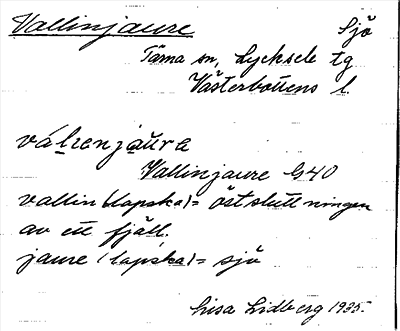 Vallinjaure Sjö
Tärna sn, Lycksele tg
Västerbottens l.
váḷtenjaura
Vallinjaure G40
vallin (lapska) = östsluttningen
av ett fjäll.
jaure (lapska) = sjö
Lisa Lidberg 1935.